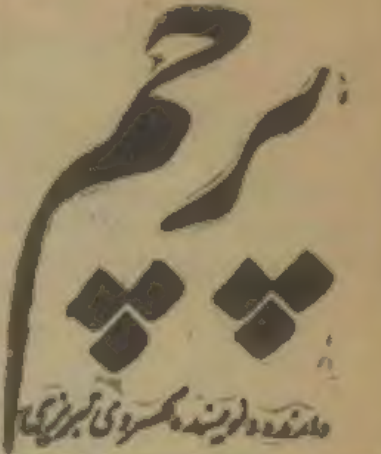 پرچم
دارنده و نویسنده کسروی تبریزی